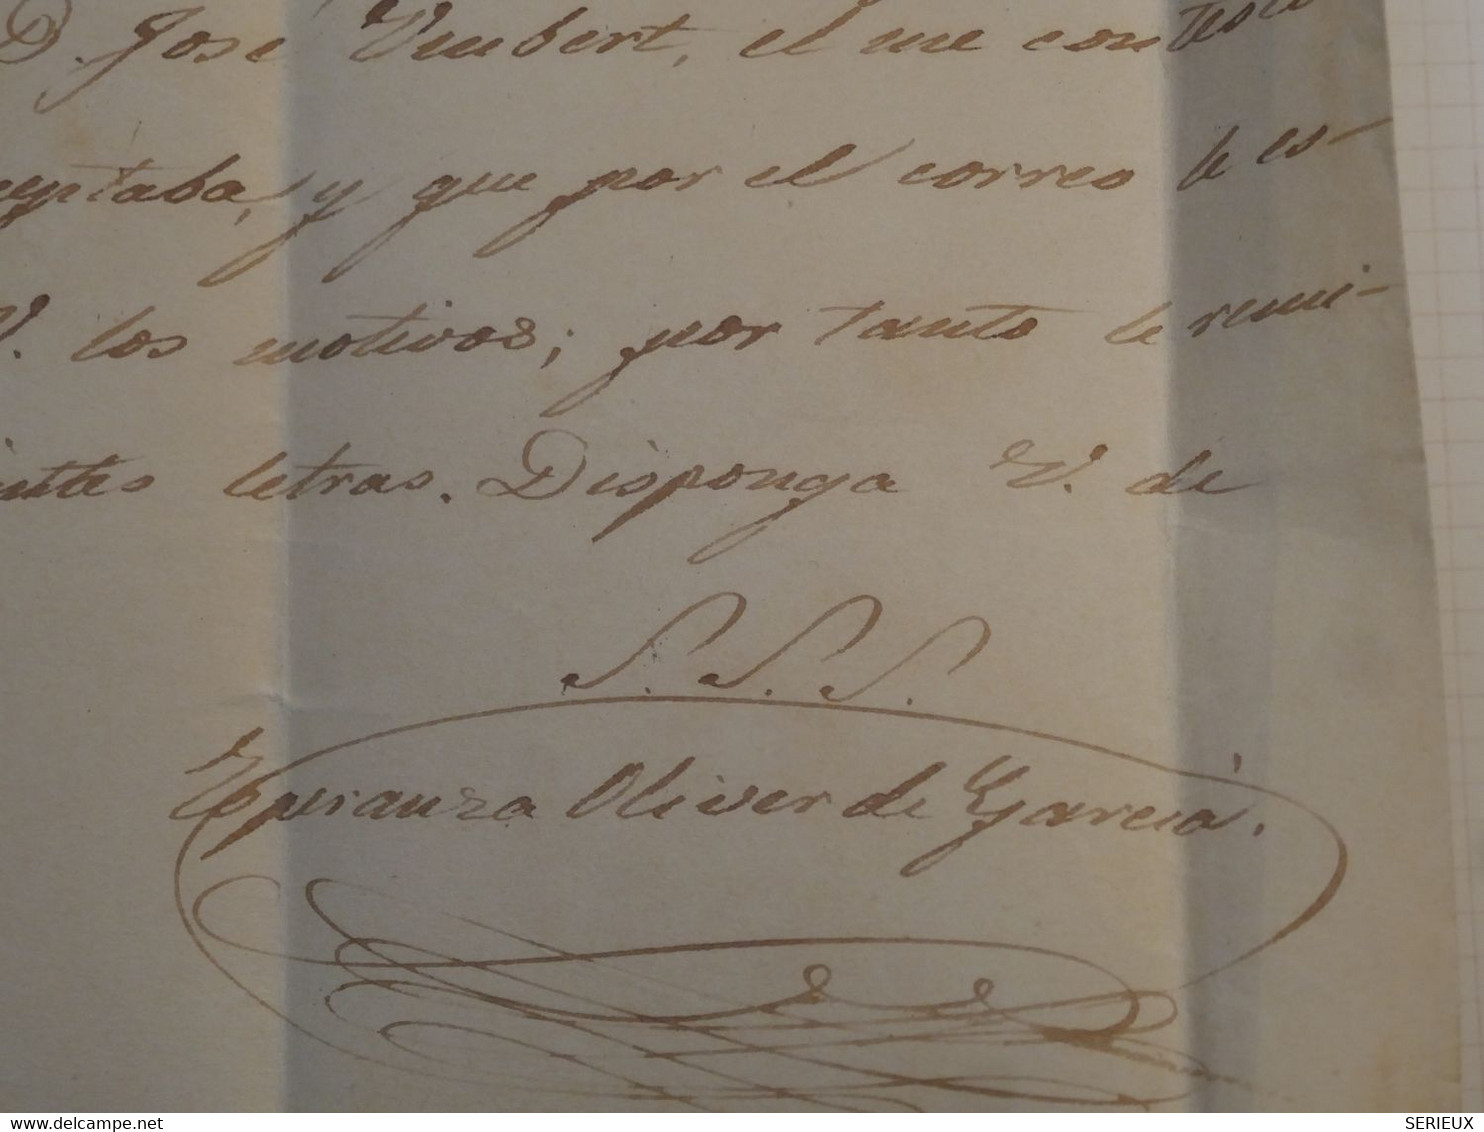 D. José Ymbert, el me contest
eptaba, y que por el correo le es-
V. los motivos; por tanto le remi-
letras. Disponga V. de
S. S. S.
Esperanza Oliver de Garcia.
delcampe.net
SERIEUX